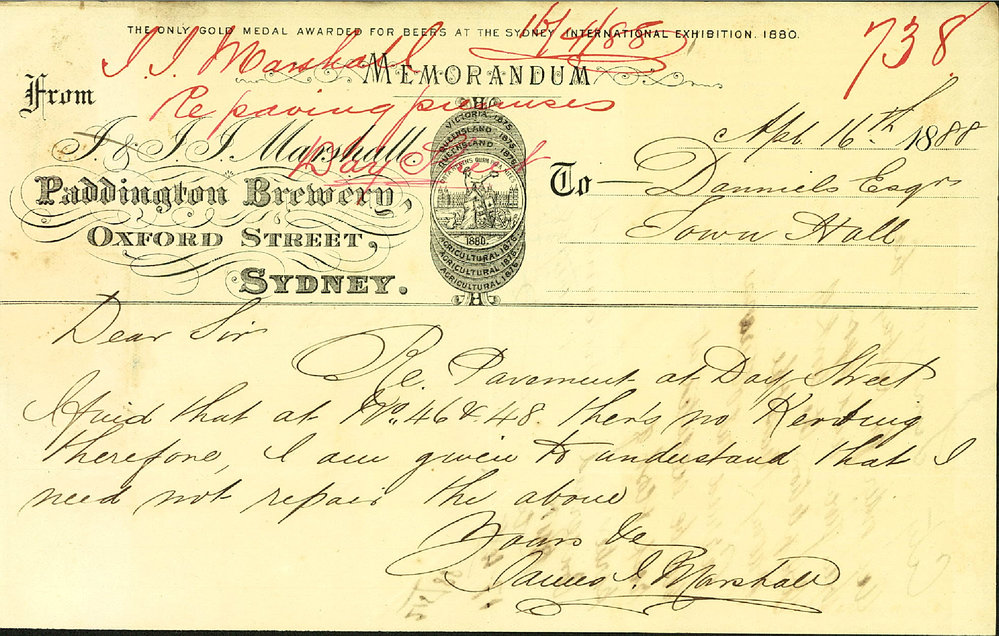 THE ONLY GOLD MEDAL AWARDED FOR BEERS AT THE SYDNEY INTERNATIONAL EXHIBITION. 1880.
J. J. Marshall 16/4/88 738
MEMORANDUM
Re paving premises
Day Street
From
J. & J. J. Marshall
Paddington Brewery,
OXFORD STREET,
SYDNEY.
VICTORIA 1875.
QUEENSLAND 1876.
QUEENSLAND 1876.
1880.
AGRICULTURAL 1875.
AGRICULTURAL 1876.
AGRICULTURAL 1876.
16th 1888
To Danniels Esqr
Town Hall
Dear Sir
Re. Pavement at Day Street
I find that at No. 46 & 48. ther's no Kerbing
therefore, I am given to understand that I
need not repair the above
Yours &c
James J. Marshall